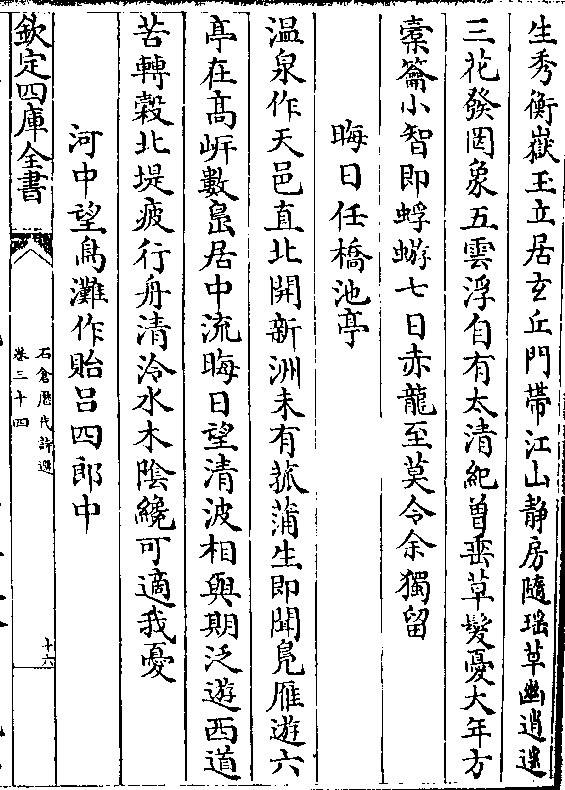 生秀衡嶽玉立居玄丘門帶江山静房隨瑶草幽逍遥
三花發罔象五雲浮自有太清紀曾垂草髮憂大年方
橐籥小智即蜉蝣七日赤龍至莫令余獨留
晦日任橋池亭
温泉作天邑直北開新洲未有菰蒲生即聞鳧雁遊六
亭在髙岍數島居中流晦日望清波相與期泛遊西道
苦轉轂北堤疲行舟清泠水木陰纔可適我憂
河中望鳥灘作貽吕四郎中
欽定四庫全書
石倉歴代詩選
卷三十四
十六